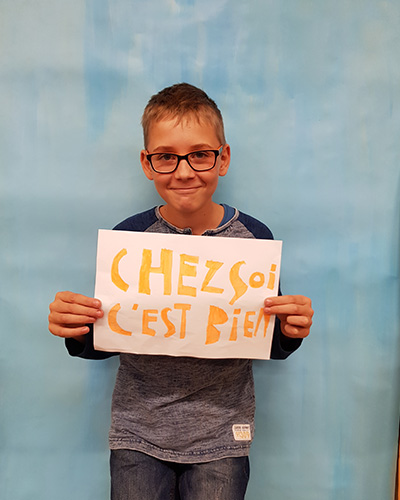 CHEZ Soi
C'EST BiEN